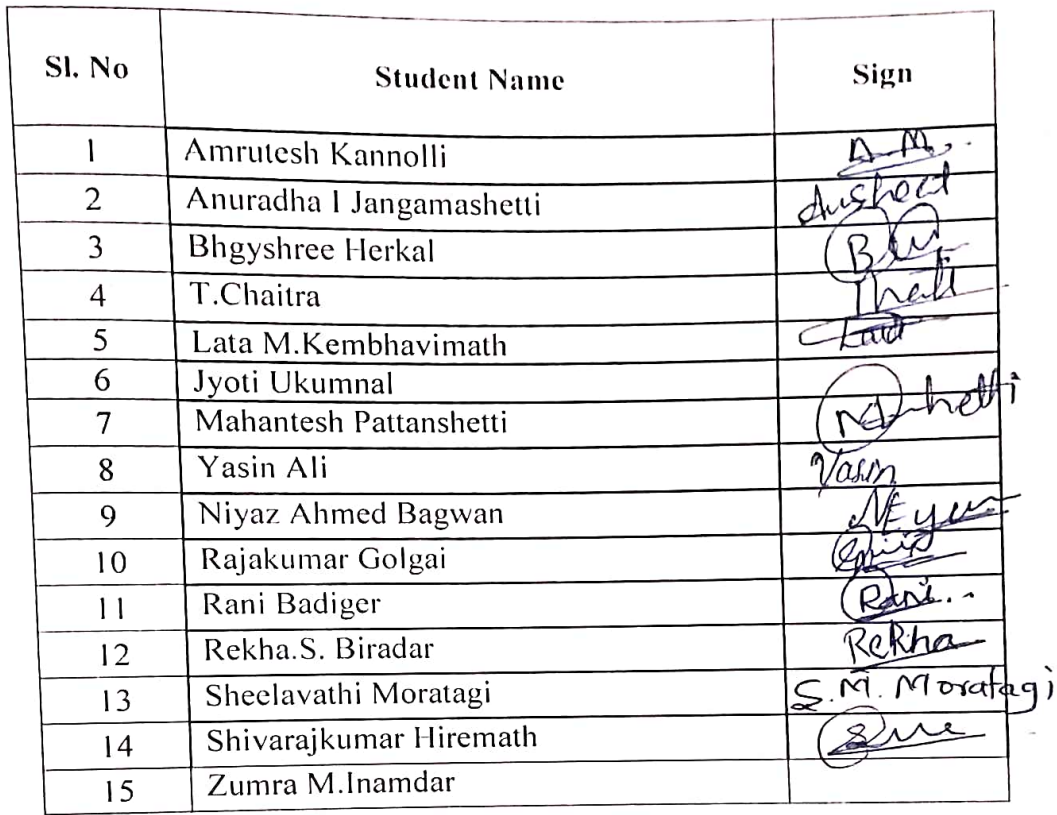 Sl. No Student Name Sign
1 Amrutesh Kannolli A.M.
2 Anuradha I Jangamashetti
3 Bhgyshree Herkal
4 T.Chaitra
5 Lata M.Kembhavimath
6 Jyoti Ukumnal
7 Mahantesh Pattanshetti
8 Yasin Ali Yasin
9 Niyaz Ahmed Bagwan
10 Rajakumar Golgai
11 Rani Badiger Rani..
12 Rekha.S. Biradar Rekha
13 Sheelavathi Moratagi S.M. Moratagi
14 Shivarajkumar Hiremath
15 Zumra M.Inamdar